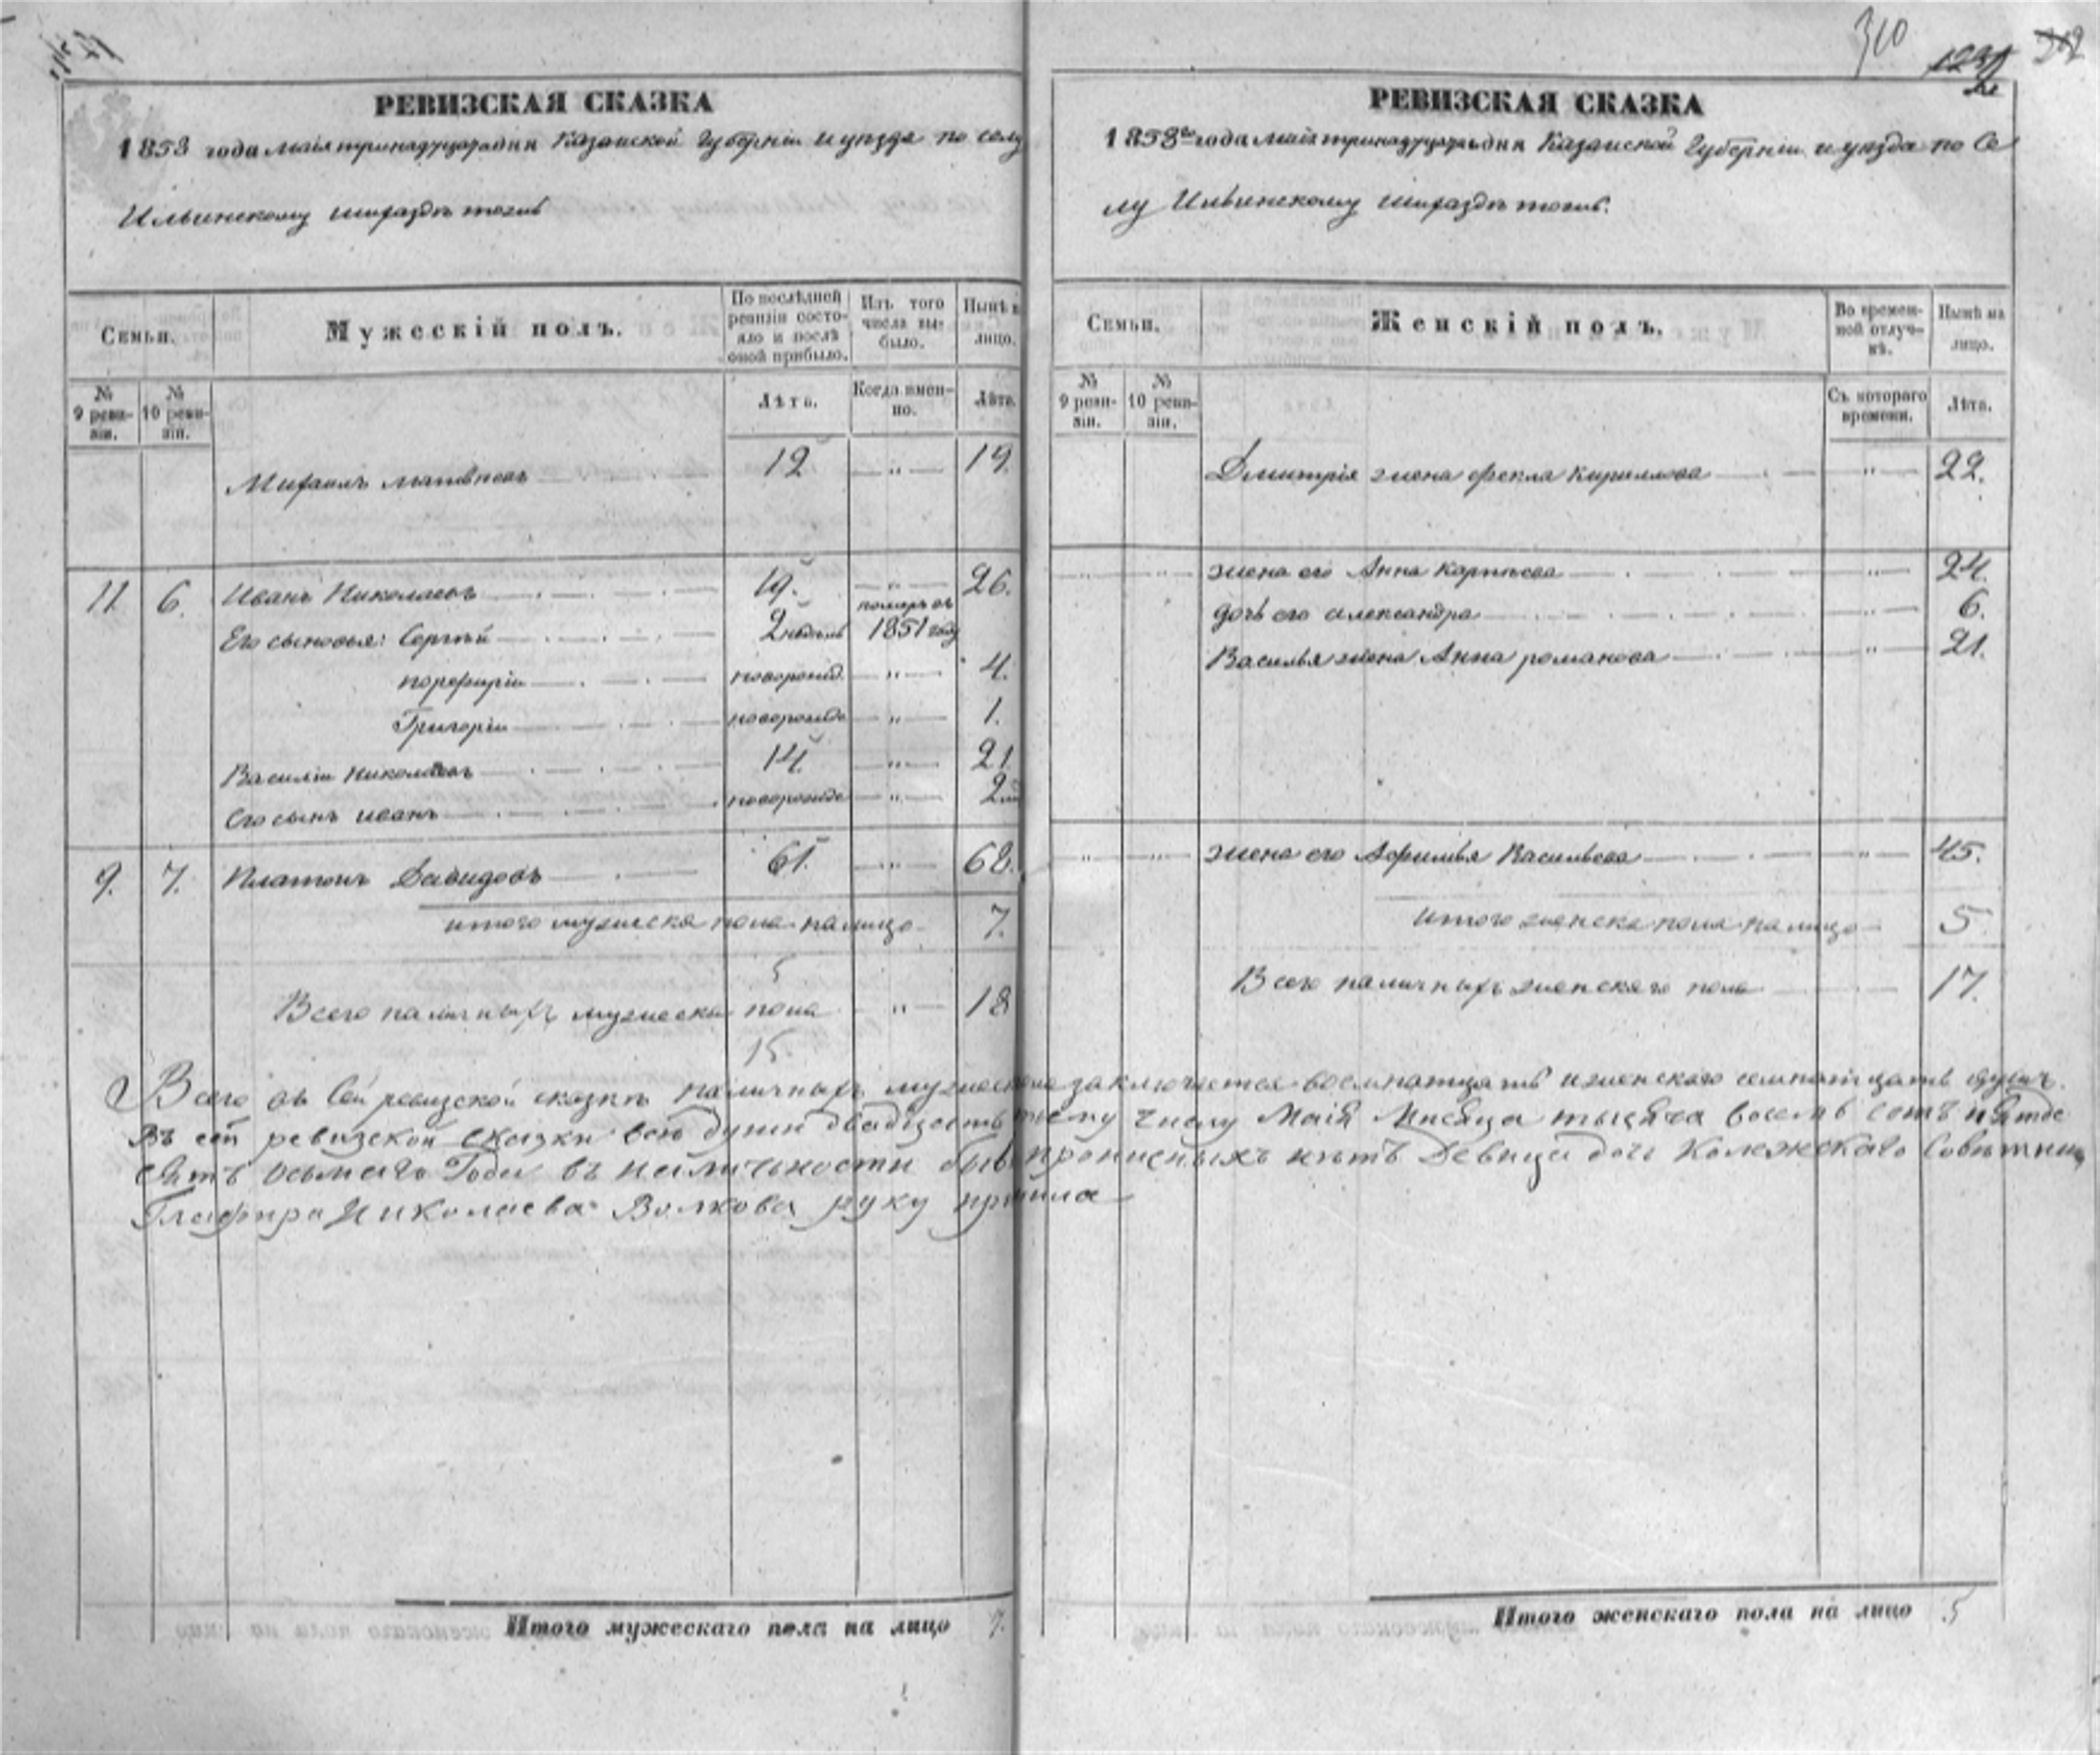 310
РЕВИЗСКАЯ СКАЗКА
1858 года маія тринадцатаго дня Казанской Губерніи и уѣзда по селу
Ильинскому
Семьи.
Мужескій полъ.
По послѣдней ревизіи состояло и послѣ оной прибыло.
Изъ того числа выбыло.
Нынѣ на лицо.
№ 9 ревизіи.
№ 10 ревизіи.
Лѣта.
Когда именно.
Лѣта.
Михаилъ Матвѣевъ 12 19.
11. 6. Иванъ Николаевъ 19. 26.
Его сыновья: Сергѣй 2 недѣль померъ въ 1851 году
порфирій новорожд. 4.
Григорій новорожд 1.
Василій Николаевъ 14. 21.
Его сынъ иванъ новорожд 2
9. 7. Платонъ Давидовъ 61. 68.
итого мужеска пола налицо 7.
5
Всего наличныхъ мужеска пола 18
15
РЕВИЗСКАЯ СКАЗКА
1858го года маія тринадцатаго дня Казанской Губерніи и уѣзда по Се
лу Ильинскому
Семьи.
Женскій полъ.
Во временной отлучкѣ.
Нынѣ на лицо.
№ 9 ревизіи.
№ 10 ревизіи.
Съ котораго времени.
Лѣта.
Дмитрія жена фекла Кириллова 22.
жена его Анна Карпѣева 24.
дочь его александра 6.
Василья жена Анна романова 21.
жена его Афимья Васильева 45.
Итого женска пола налицо 5
Всего наличныхъ женскаго пола 17.
Всего въ Сей ревизской сказкѣ наличныхъ мужеска заключается восемнатцать и женскаго семнатцать душъ.
Въ сей ревизской сказки всѣ души двадцать числу Маія Мисяца тысяча восемь сотъ пятде
сятъ осьмаго Года въ наличьности прописныхъ нѣтъ Девица дочь Колежскаго Совѣтника
Глафира Николаева Волкова руку
Итого мужескаго пола на лицо 7.
Итого женскаго пола на лицо 5